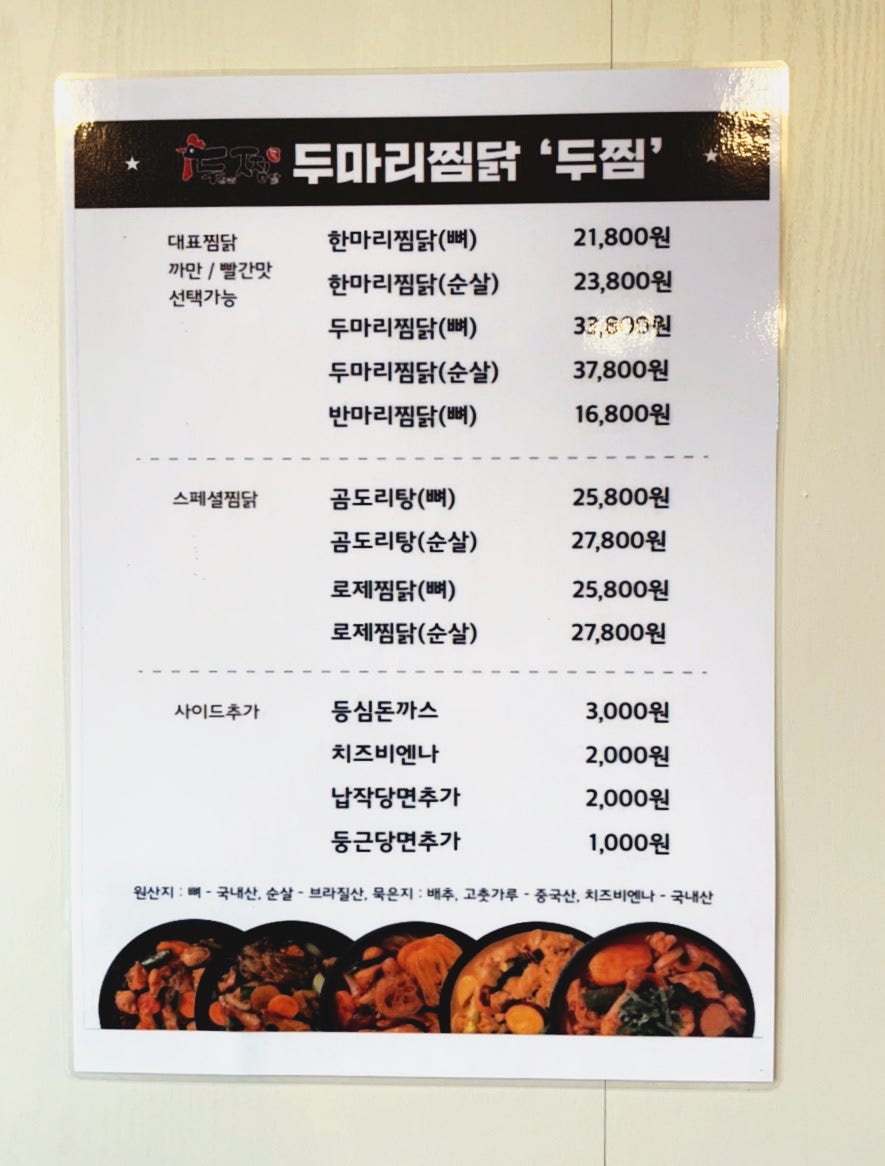 두찜 두마리찜닭 ‘두찜’
대표찜닭
까만 / 빨간맛
선택가능
한마리찜닭(뼈) 21,800원
한마리찜닭(순살) 23,800원
두마리찜닭(뼈) 33,800원
두마리찜닭(순살) 37,800원
반마리찜닭(뼈) 16,800원
스페셜찜닭
곰도리탕(뼈) 25,800원
곰도리탕(순살) 27,800원
로제찜닭(뼈) 25,800원
로제찜닭(순살) 27,800원
사이드추가
등심돈까스 3,000원
치즈비엔나 2,000원
납작당면추가 2,000원
둥근당면추가 1,000원
원산지 : 뼈 - 국내산, 순살 - 브라질산, 묵은지 : 배추, 고춧가루 - 중국산, 치즈비엔나 - 국내산